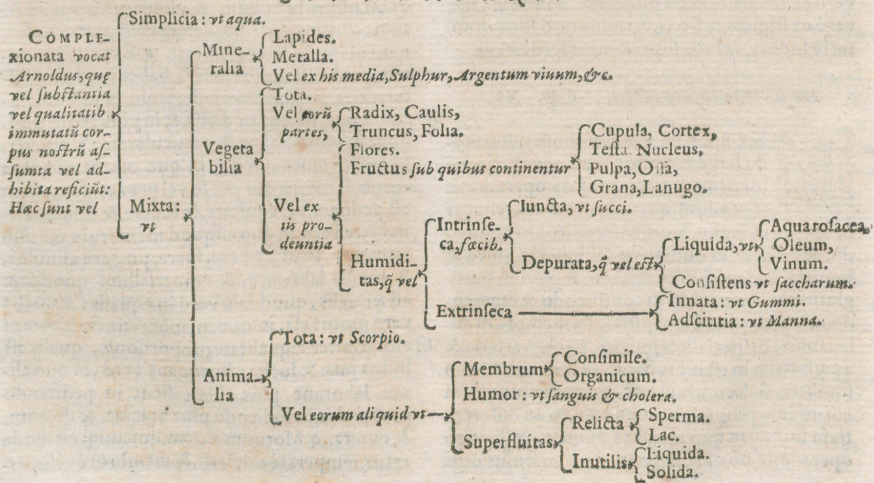 Simplicia: vt aqua.
COMPLE-
xionata vocat
Arnoldus, quę
vel substantia
vel qualitatib.
immutatū cor-
pus nostrū as-
sumta vel ad-
hibita reficiūt:
Hæc sunt vel
Mixta:
vt
Mine-
ralia
Lapides.
Metalla.
Vel ex his media, Sulphur, Argentum viuum, &c.
Vegeta
bilia
Tota.
Vel eorū
partes,
Radix, Caulis,
Truncus, Folia.
Vel ex
iis pro-
deuntia
Flores.
Fructus sub quibus continentur
Cupula, Cortex,
Testa. Nucleus,
Pulpa, Ossa,
Grana, Lanugo.
Humidi-
tas, q̃ vel
Intrinse-
ca, fæcib.
Iuncta, vt succi.
Depurata, q̃ vel est
Liquida, vt
Aqua rosacea,
Oleum,
Vinum.
Consistens vt saccharum.
Extrinseca
Innata: vt Gummi.
Adscititia: vt Manna.
Anima-
lia
Tota: vt Scorpio.
Vel eorum aliquid vt
Membrum
Consimile.
Organicum.
Humor: vt sanguis & cholera.
Superfluitas
Relicta
Sperma.
Lac.
Inutilis
Liquida.
Solida.